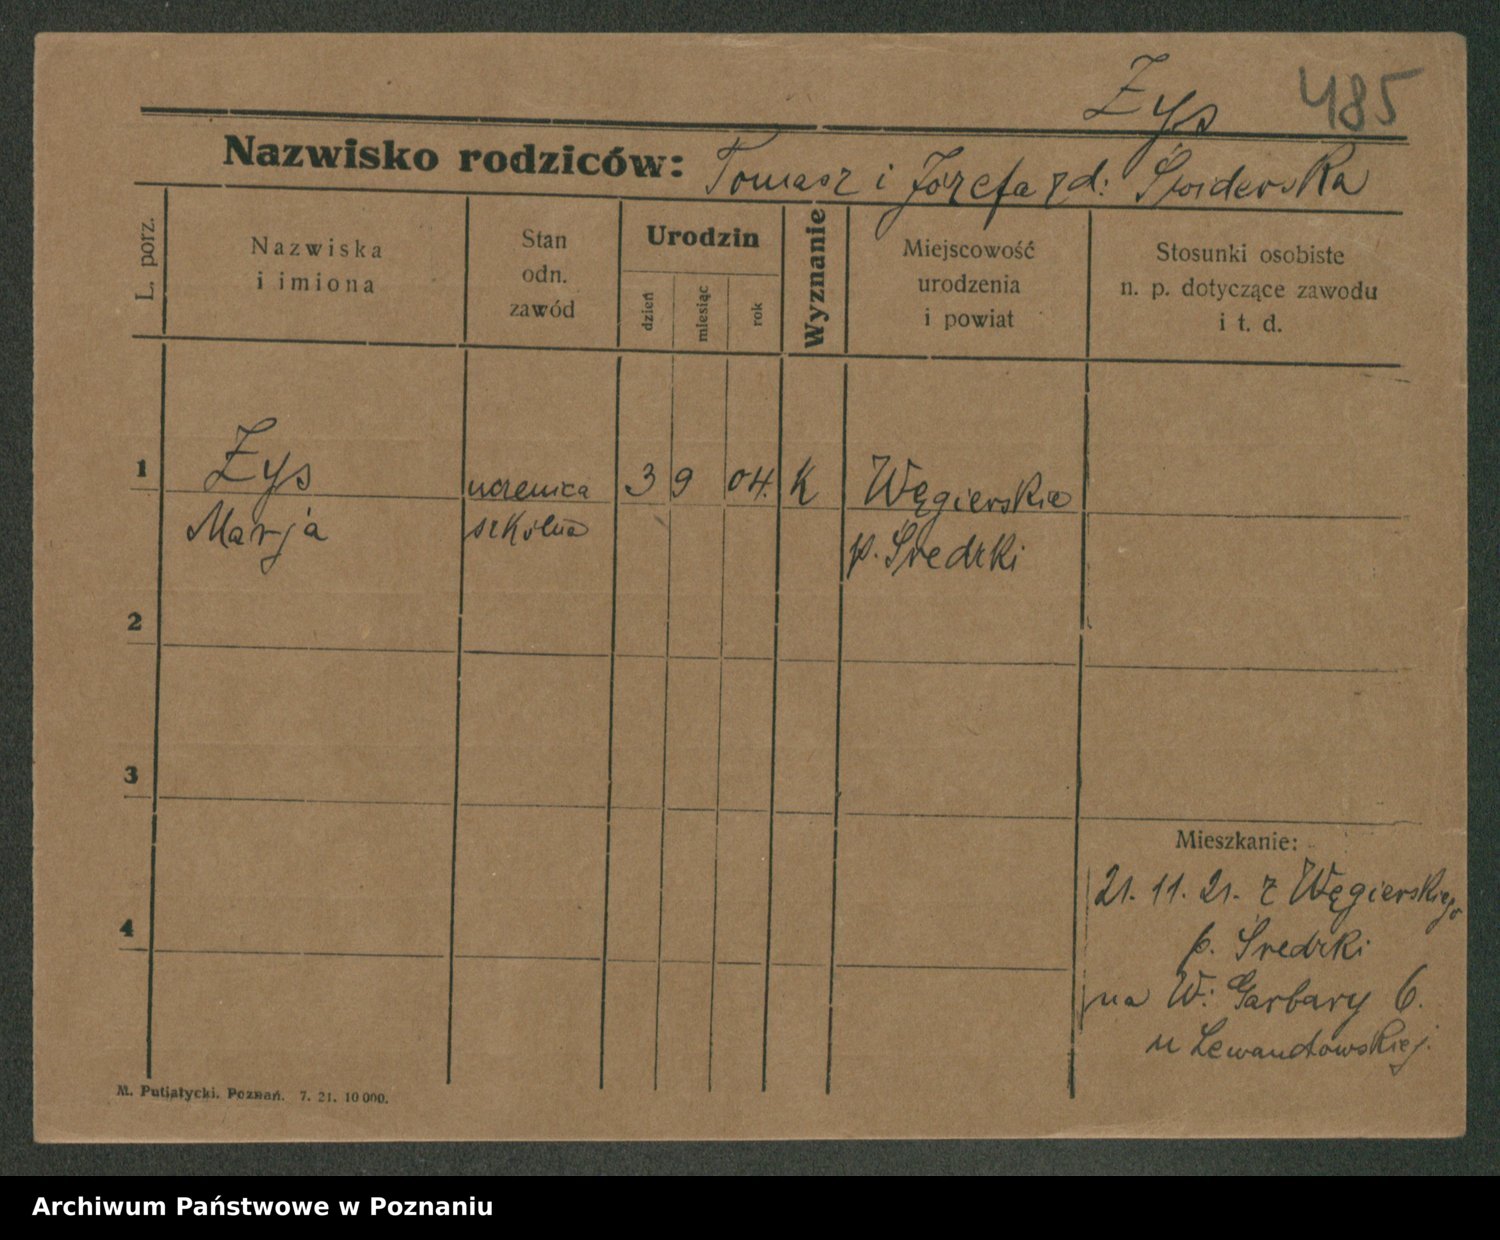 Żys 485
Nazwisko rodziców: Tomasz i Józefa zd: Świderska
L. porz.
Nazwiska
i imiona
Stan
odn.
zawód
Urodzin
dzień
miesiąc
rok
Wyznanie
Miejscowość
urodzenia
i powiat
Stosunki osobiste
n. p. dotyczące zawodu
i t. d.
1 Żys uczenica 3 9 04. K Węgierskie
Marja szkólna p. Średzki
2
3
4
Mieszkanie:
21. 11. 21. z Węgierskiego
p. Średzki
na W. Garbary 6.
u Lewandowskiej.
M. Putiatycki. Poznań. 7. 21. 10 000.
Archiwum Państwowe w Poznaniu